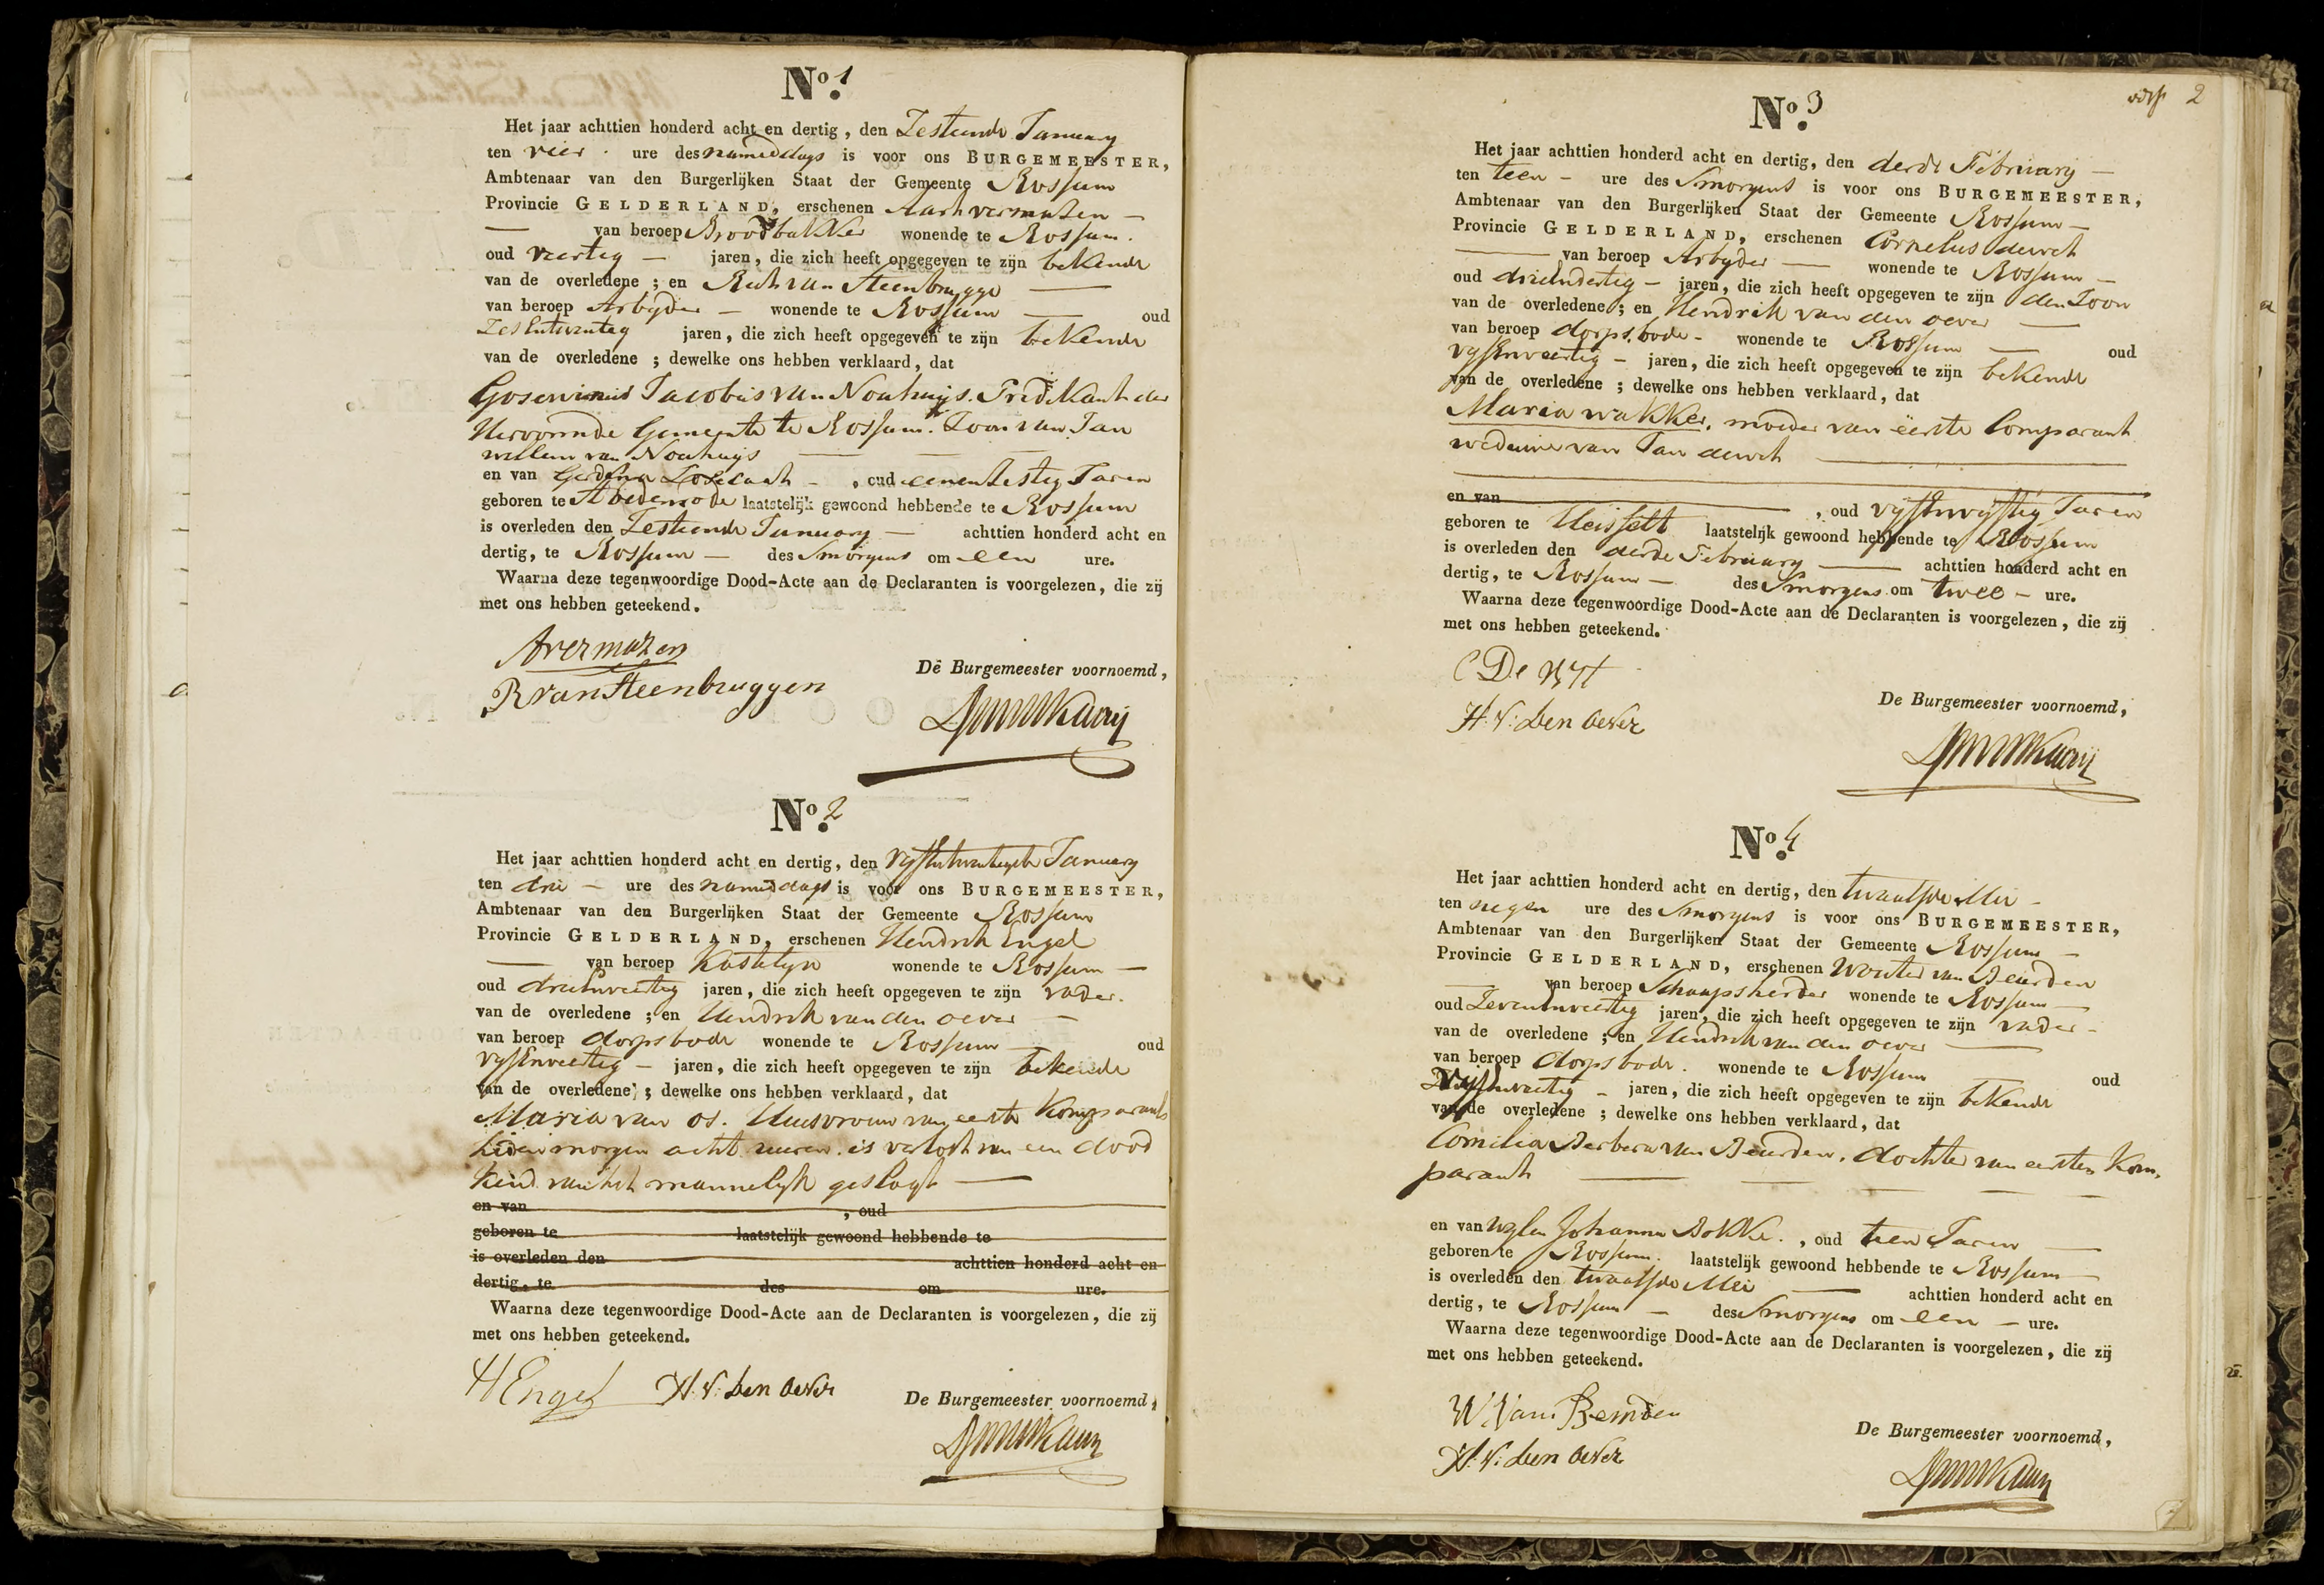 No. 1
Het jaar achttien honderd acht en dertig, den Zestiende January
ten vier ure des nameddags is voor ons BURGEMEESTER,
Ambtenaar van den Burgerlijken Staat der Gemeente Rossum
Provincie GELDERLAND, erschenen vermasen —
— van beroep Broodbakker wonende te Rossum.
oud veertig — jaren, die zich heeft opgegeven te zijn bekende
van de overledene; en van Steenbrugge —
van beroep Arbyder — wonende te Rossum — oud
Zesentwenteg jaren, die zich heeft opgegeven te zijn bekende
van de overledene; dewelke ons hebben verklaard, dat
Goswinus Jacobus van Nouhuijs. Predikant der
Hervormde Gemeente te Rossum. Zoon van Jan
willem van Nouhuijs — — —
en van Gerdina —, oud eenenzestig Jaren
geboren te laatstelijk gewoond hebbende te Rossum
is overleden den Zestiende January — achttien honderd acht en
dertig, te Rossum — des Smorgens om een ure.
Waarna deze tegenwoordige Dood-Acte aan de Declaranten is voorgelezen, die zij
met ons hebben geteekend.
Avermazen
R van Steenbruggen
De Burgemeester voornoemd,
No. 2
Het jaar achttien honderd acht en dertig, den vyfentwentigste January
ten drie — ure des nameddags is voor ons BURGEMEESTER,
Ambtenaar van den Burgerlijken Staat der Gemeente Rossum
Provincie GELDERLAND, erschenen Hendrik Engel
— van beroep Kastelyn wonende te Rossum —
oud drieenveerteg jaren, die zich heeft opgegeven te zijn vader.
van de overledene; en Hendrik van den oever —
van beroep dorpsbode wonende te Rossum — oud
vyfenveerteg — jaren, die zich heeft opgegeven te zijn bekende
van de overledene; dewelke ons hebben verklaard, dat
Maria van Os. Huisvrouw van eerste Komparant
heden morgen acht uuren. is verlost van een dood
kind van het mannelyk geslagt —
en van , oud
geboren te laatstelijk gewoond hebbende te
is overleden den achttien honderd acht en
dertig, te des om ure.
Waarna deze tegenwoordige Dood-Acte aan de Declaranten is voorgelezen, die zij
met ons hebben geteekend.
H Engel H. v: den Oever
De Burgemeester voornoemd,
2
No. 3
Het jaar achttien honderd acht en dertig, den derde February —
ten teen — ure des Smorgens is voor ons BURGEMEESTER,
Ambtenaar van den Burgerlijken Staat der Gemeente Rossum —
Provincie GELDERLAND, erschenen Cornelus
— van beroep Arbyder — wonende te Rossum —
oud drieendertig — jaren, die zich heeft opgegeven te zijn den Zoon
van de overledene; en Hendrik van den oever —
van beroep dorpsbode — wonende te Rossum — oud
vyfenveertig — jaren, die zich heeft opgegeven te zijn bekende
van de overledene; dewelke ons hebben verklaard, dat
Maria wakker, moeder van eerste Comparant
weduwe van Jan —
en van , oud vyfenvyftig Jaren
geboren te laatstelijk gewoond hebbende te Rossum
is overleden den derde February — achttien honderd acht en
dertig, te Rossum — des Smorgens om twee — ure.
Waarna deze tegenwoordige Dood-Acte aan de Declaranten is voorgelezen, die zij
met ons hebben geteekend.
C De
H. v: den Oever
De Burgemeester voornoemd,
No. 4
Het jaar achttien honderd acht en dertig, den twaalfde Mei —
ten negen ure des Smorgens is voor ons BURGEMEESTER,
Ambtenaar van den Burgerlijken Staat der Gemeente Rossum —
Provincie GELDERLAND, erschenen Wouter van Beurden
— van beroep Schaapsherder wonende te Rossum —
oud Zevenenveerteg jaren, die zich heeft opgegeven te zijn vader —
van de overledene; en Hendrik van den oever —
van beroep dorpsbode. wonende te Rossum — oud
vyfenveertig — jaren, die zich heeft opgegeven te zijn bekende
van de overledene; dewelke ons hebben verklaard, dat
Cornelia Barbera van Beurden. dochter van eersten Kom-
parant — — — — —
en van wylen Johanna , oud tien Jaren —
geboren te Rossum. laatstelijk gewoond hebbende te Rossum —
is overleden den twaalfde Mei — achttien honderd acht en
dertig, te Rossum — des Smorgens om een — ure.
Waarna deze tegenwoordige Dood-Acte aan de Declaranten is voorgelezen, die zij
met ons hebben geteekend.
W Van
H. v: den Oever
De Burgemeester voornoemd,